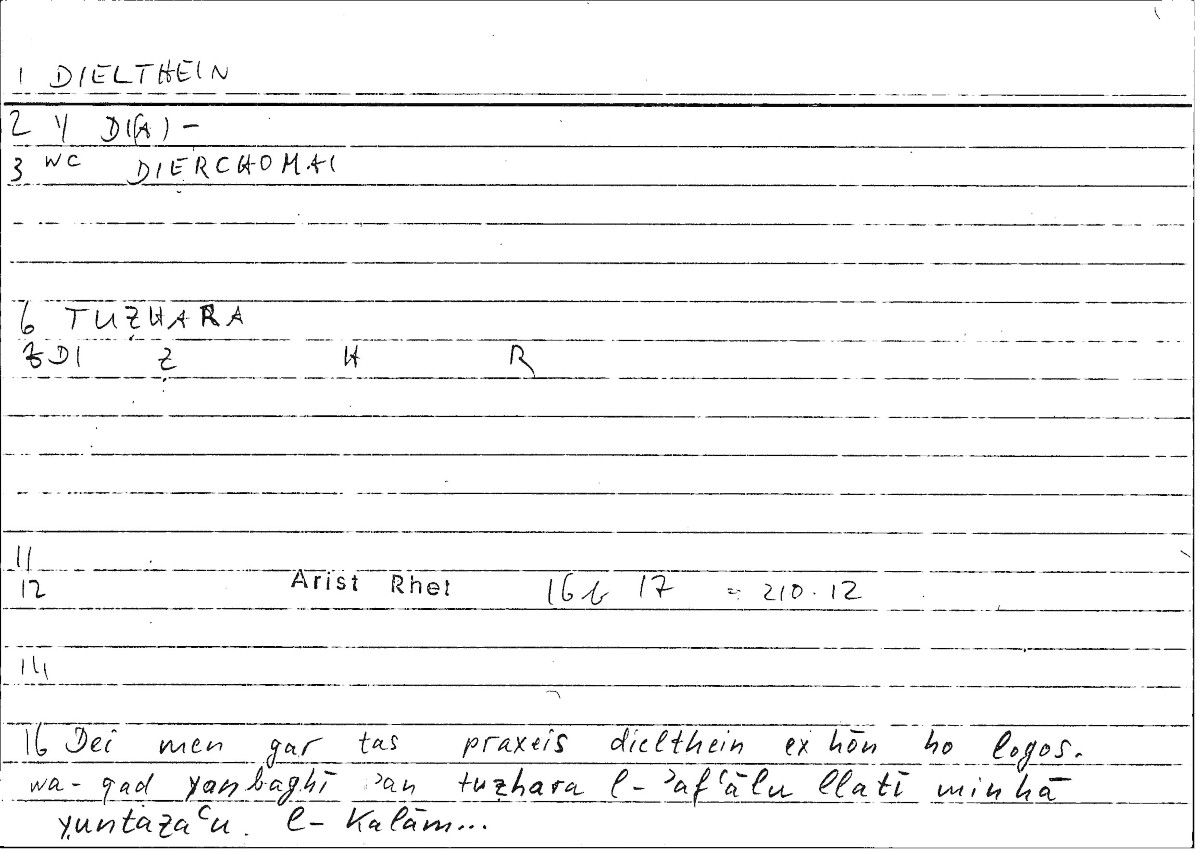 1 DIELTHEIN
2 Y DI(A) -
3 WC DIERCHOMAI
6 TUẒHARA
DI Ẓ H R
11
12 Arist Rhet 16b 17 = 210.12
14
16 Dei men gar tas praxeis dielthein ex hōn ho logos.
wa-qad yanbaghī ʾan tuẓhara l-ʾafʿālu llatī minhā
yuntazaʿu. l-Kalām...